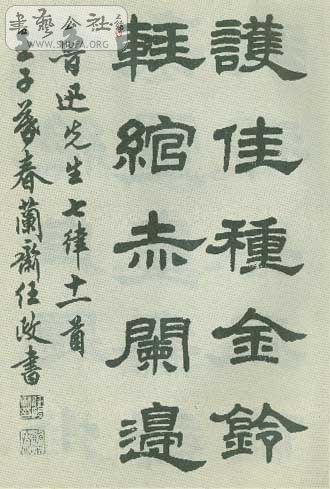 書藝公社
WWW.SHUFA.ORG
護佳種金鈴
輕綰赤闌邊
魯迅先生七律十一首
子春蘭齋任政書